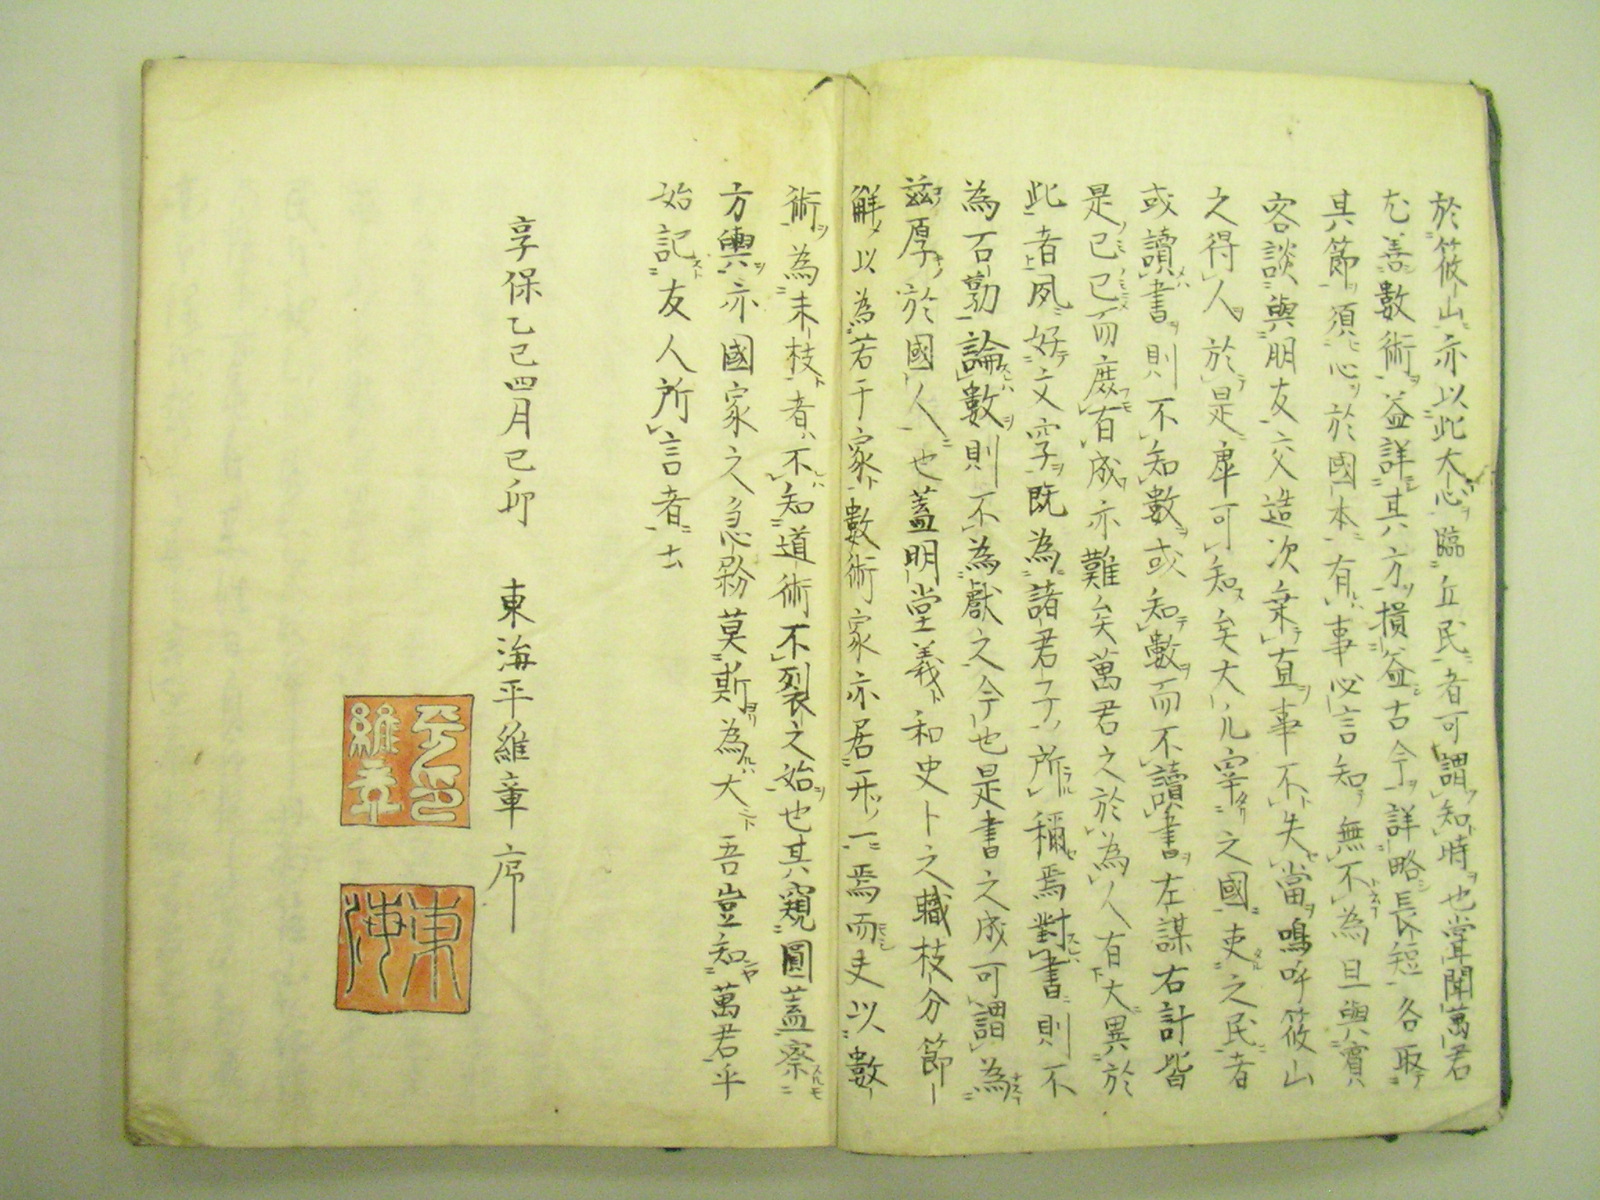 於筱山亦以此大心臨丘民者可謂知時也嘗聞萬君
尤善數術益詳其方損益古今詳略長短各取
其節須心於國本有事必言知無不為且與賓
客談與朋友交造次棄直事不失當嗚呼筱山
之得人於是乎可知矣大凡宰之國吏之民者
或讀書則不知數或知數而不讀書左謀右計皆
是已已而庶有成亦難矣萬君之於為人有大異於
此者夙好文字既為諸君子所稱焉對書則不
為石勒論數則不為獻之今也是書之成可謂為
茲厚於國人也蓋明堂義和史卜之職枝分節
解以為若干家數術家亦居一焉而史以數
術為末枝者不知道術不裂之始也其窺圓蓋察
方輿亦國家之急務莫斯為大吾豈知萬君乎
始記友人所言者云
享保乙巳四月己卯 東海平維章序
平印
維章
東
海